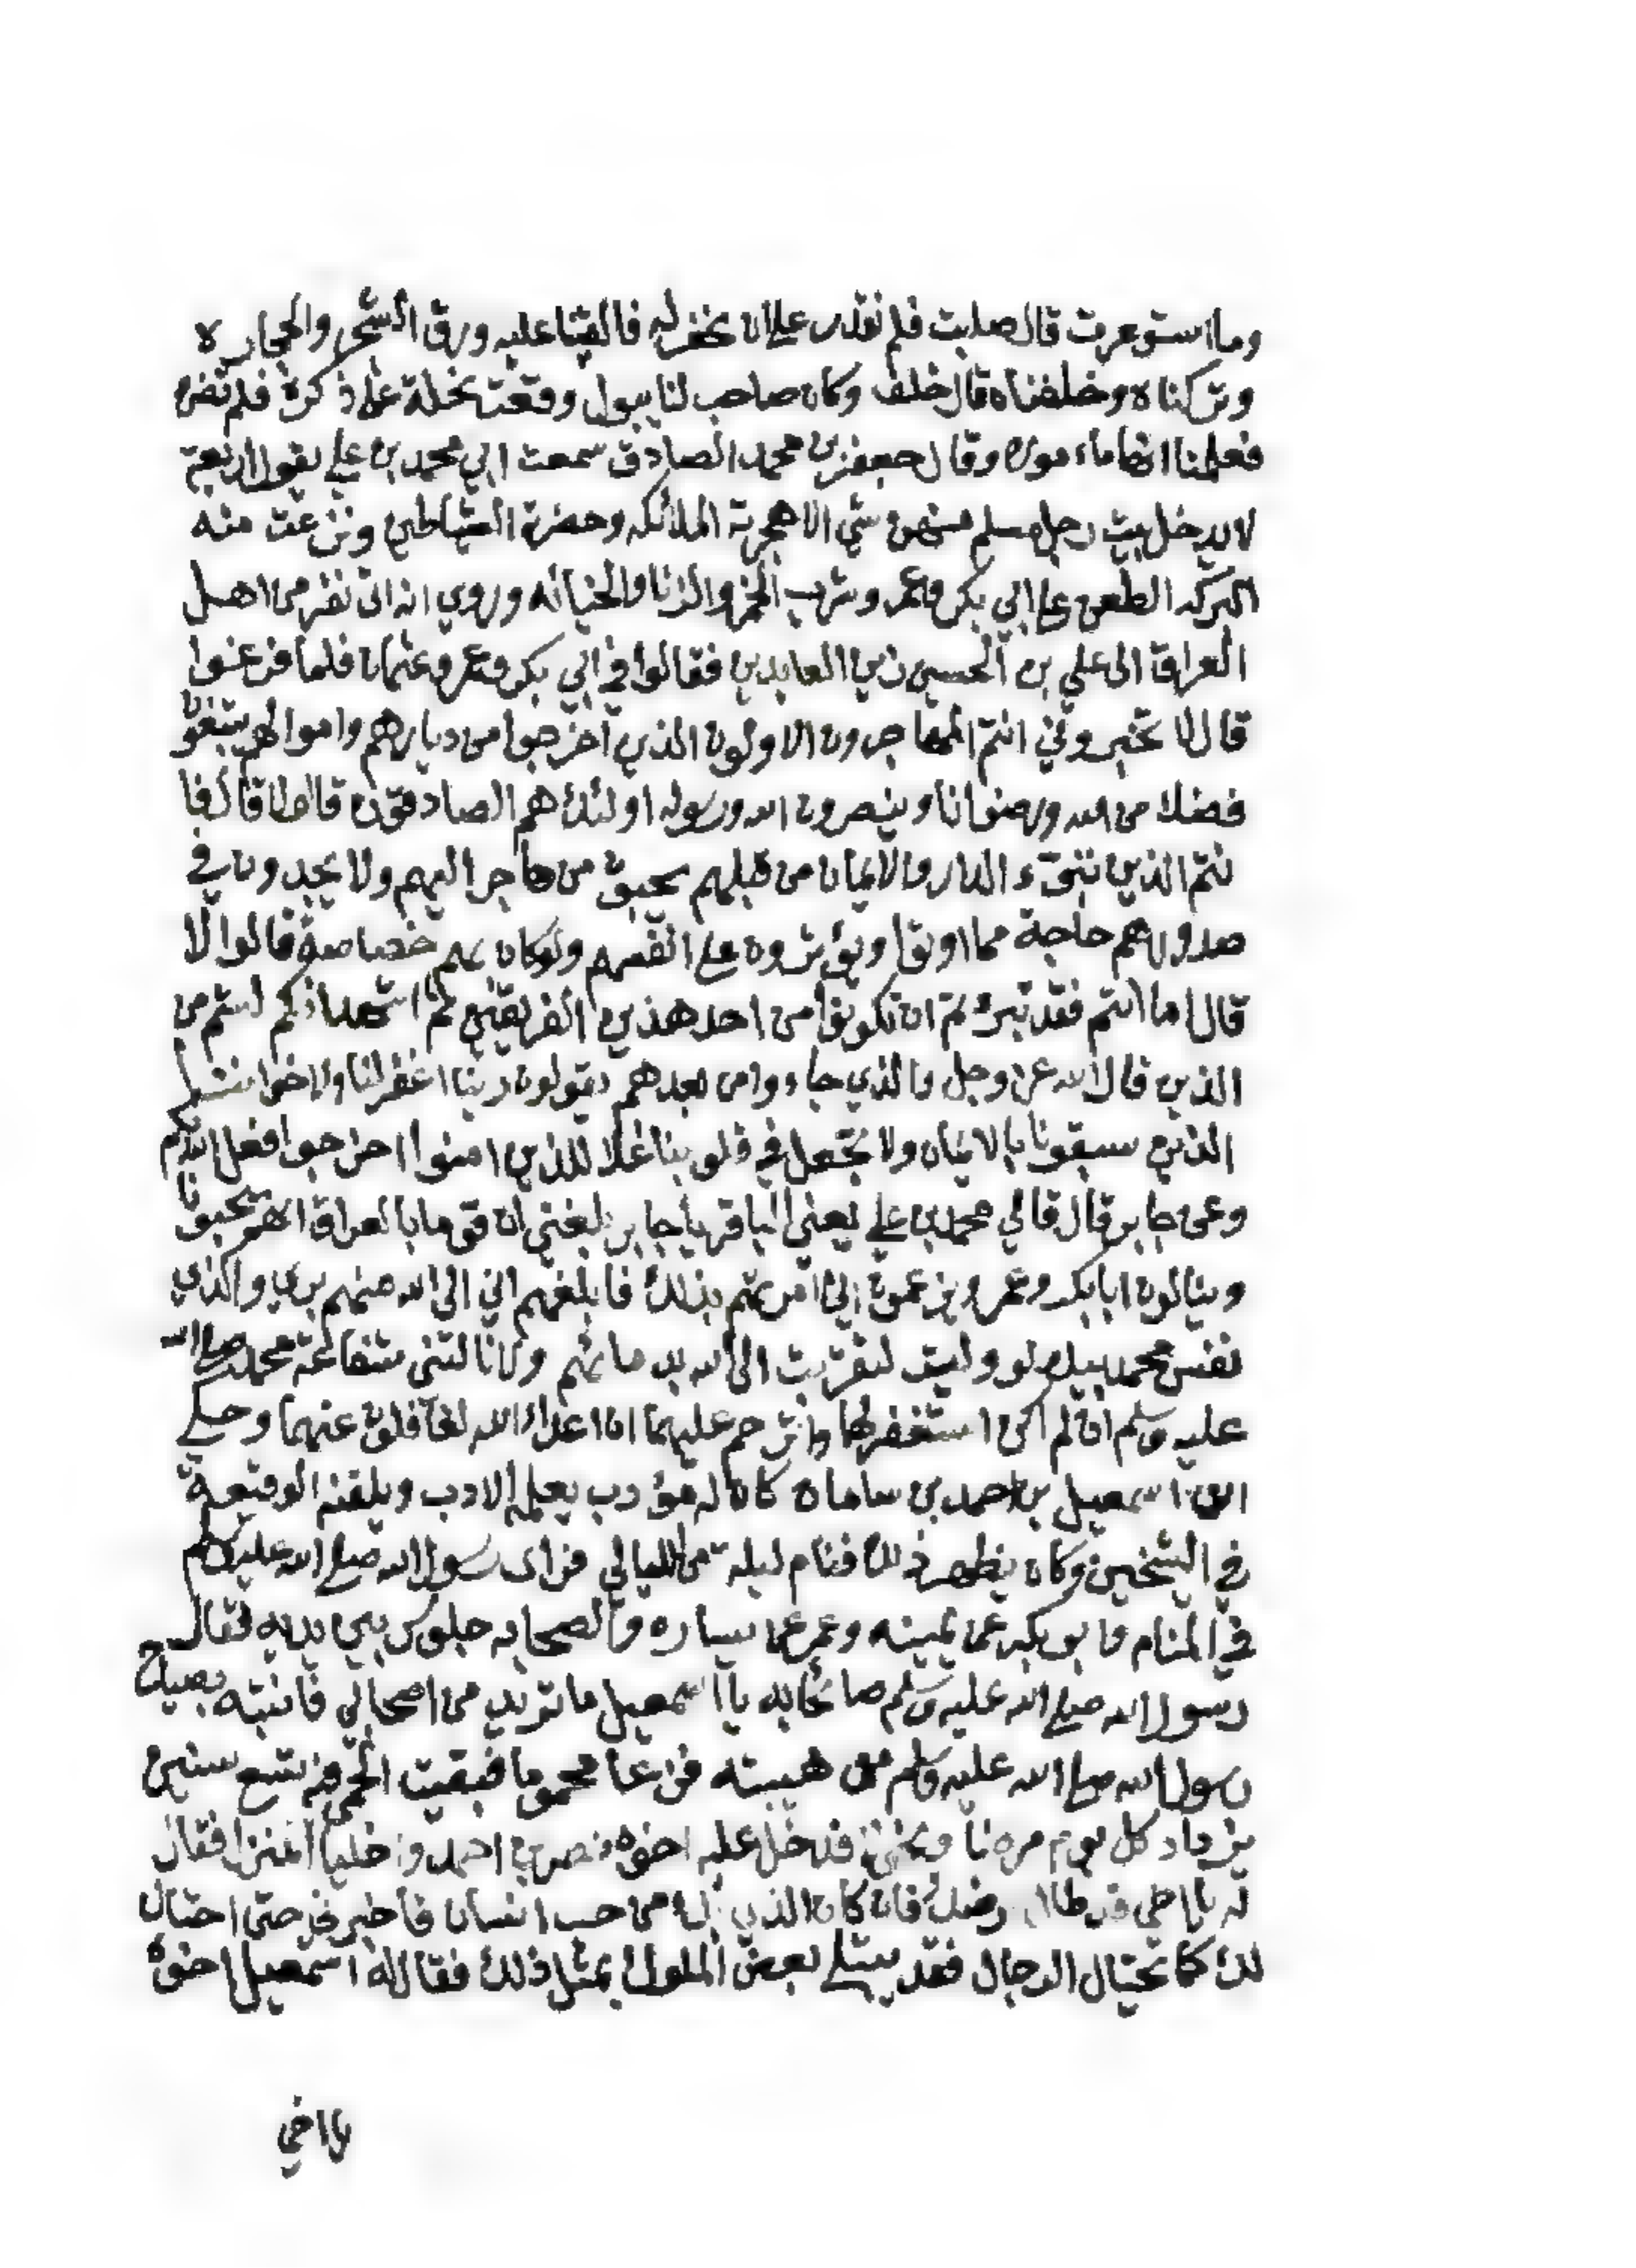 وما استوعرت قال صلبت فلم نقدر على ان نحفر له فالقينا عليه ورق الشجر والحجاره
وتركناه وخلفناه قال خلف وكان صاحب لنا يبول وقعت نحلة على ذكره فلم تضره
فعلمنا انها ماموره وقال جعفر بن محمد الصادق سمعت ابي محمد بن علي يقول اربعة
لا يدخل بيت رجل مسلم منهن شي الا هجرته الملائكه وحضرته الشياطين ونزعت منه
البركه الطعن على ابي بكر وعمر وشرب الخمر والزنا والخيانه وروي انه اتى نفر من اهل
العراق الى علي بن الحسين زين العابدين فقالوا في ابي بكر وعمر وعثمان فلما فرغوا
قال الا تخبروني انتم المهاجرون الاولون الذين اخرجوا من ديارهم واموالهم يبتغون
فضلا من الله ورضوانا وينصرون الله ورسوله اولئك هم الصادقون قالوا لا قال فا
نتم الذين تبوء الدار والايمان من قبلهم يحبون من هاجر اليهم ولا يجدون في
صدورهم حاجة مما اوتوا ويؤثرون على انفسهم ولو كان بهم خصاصة قالوا لا
قال اما انتم فقد تبرئتم ان تكونوا من احد هذين الفريقين ثم اشهد انكم لستم من
الذين قال الله عز وجل والذين جاءوا من بعدهم يقولون ربنا اغفر لنا ولاخواننا
الذين سبقونا بالايمان ولا تجعل في قلوبنا غلا للذين امنوا اخرجوا فعل الله بكم
وعن جابر قال قال لي محمد بن علي يعني الباقر يا جابر بلغني ان قوما بالعراق انهم يحبونا
وينالون ابا بكر وعمر ويزعمون اني امرتهم بذلك فابلغهم اني الى الله منهم بري والذي
نفس محمد بيده لو وليت لتقربت الى الله بدمائهم ولا نالتني شفاعة محمد صلى الله
عليه وسلم ان لم اكن استغفر لهما واترحم عليهما ان اعداء الله لغافلون عنهما وحكي
ان اسمعيل بن احمد بن سامان كان له مؤدب يعلمه الادب ويلقنه الوقيعة
في الشيخين وكان يظهر ذلك فنام ليلة من الليالي فراى رسول الله صلى الله عليه وسلم
في المنام وابو بكر عن يمينه وعمر عن يساره والصحابه جلوس بين يديه فقال
رسول الله صلى الله عليه وسلم صائحا به يا اسمعيل ما تريد من اصحابي فانتبه بصياح
رسول الله صلى الله عليه وسلم من هيبته فزعا محموما فبقيت الحمى فيه تسع سنين
يزداد كل يوم فدخل عليه اخوه نصر بن احمد واخليا المنزل فقال
له يا اخي قد طال مرضك فان كان الذي بك من حب انسان فاخبرني حتى احتال
لك كما تحتال الرجال فقد يبتلى بعض الملوك بمثل ذلك فقال له اسمعيل اخوه
يا اخي